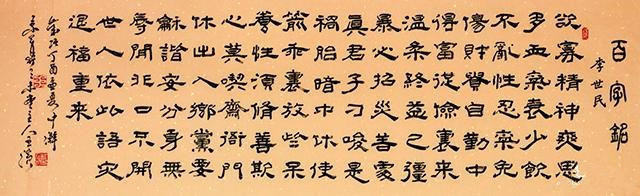 百字銘
李世民
欲寡精神爽思
多血氣衰少飲
不亂性忍氣免
傷財貴自勤中
得富從儉裏來
溫柔終益己彊
暴必招災善處
真君子刁唆是
禍胎暗中休使
箭乖裏放些呆
養性須修善欺
心莫喫齋衙門
休出入鄉黨要
龢諧安分身無
辱閒非口不開
世人依此語灾
退福重來
丁酉